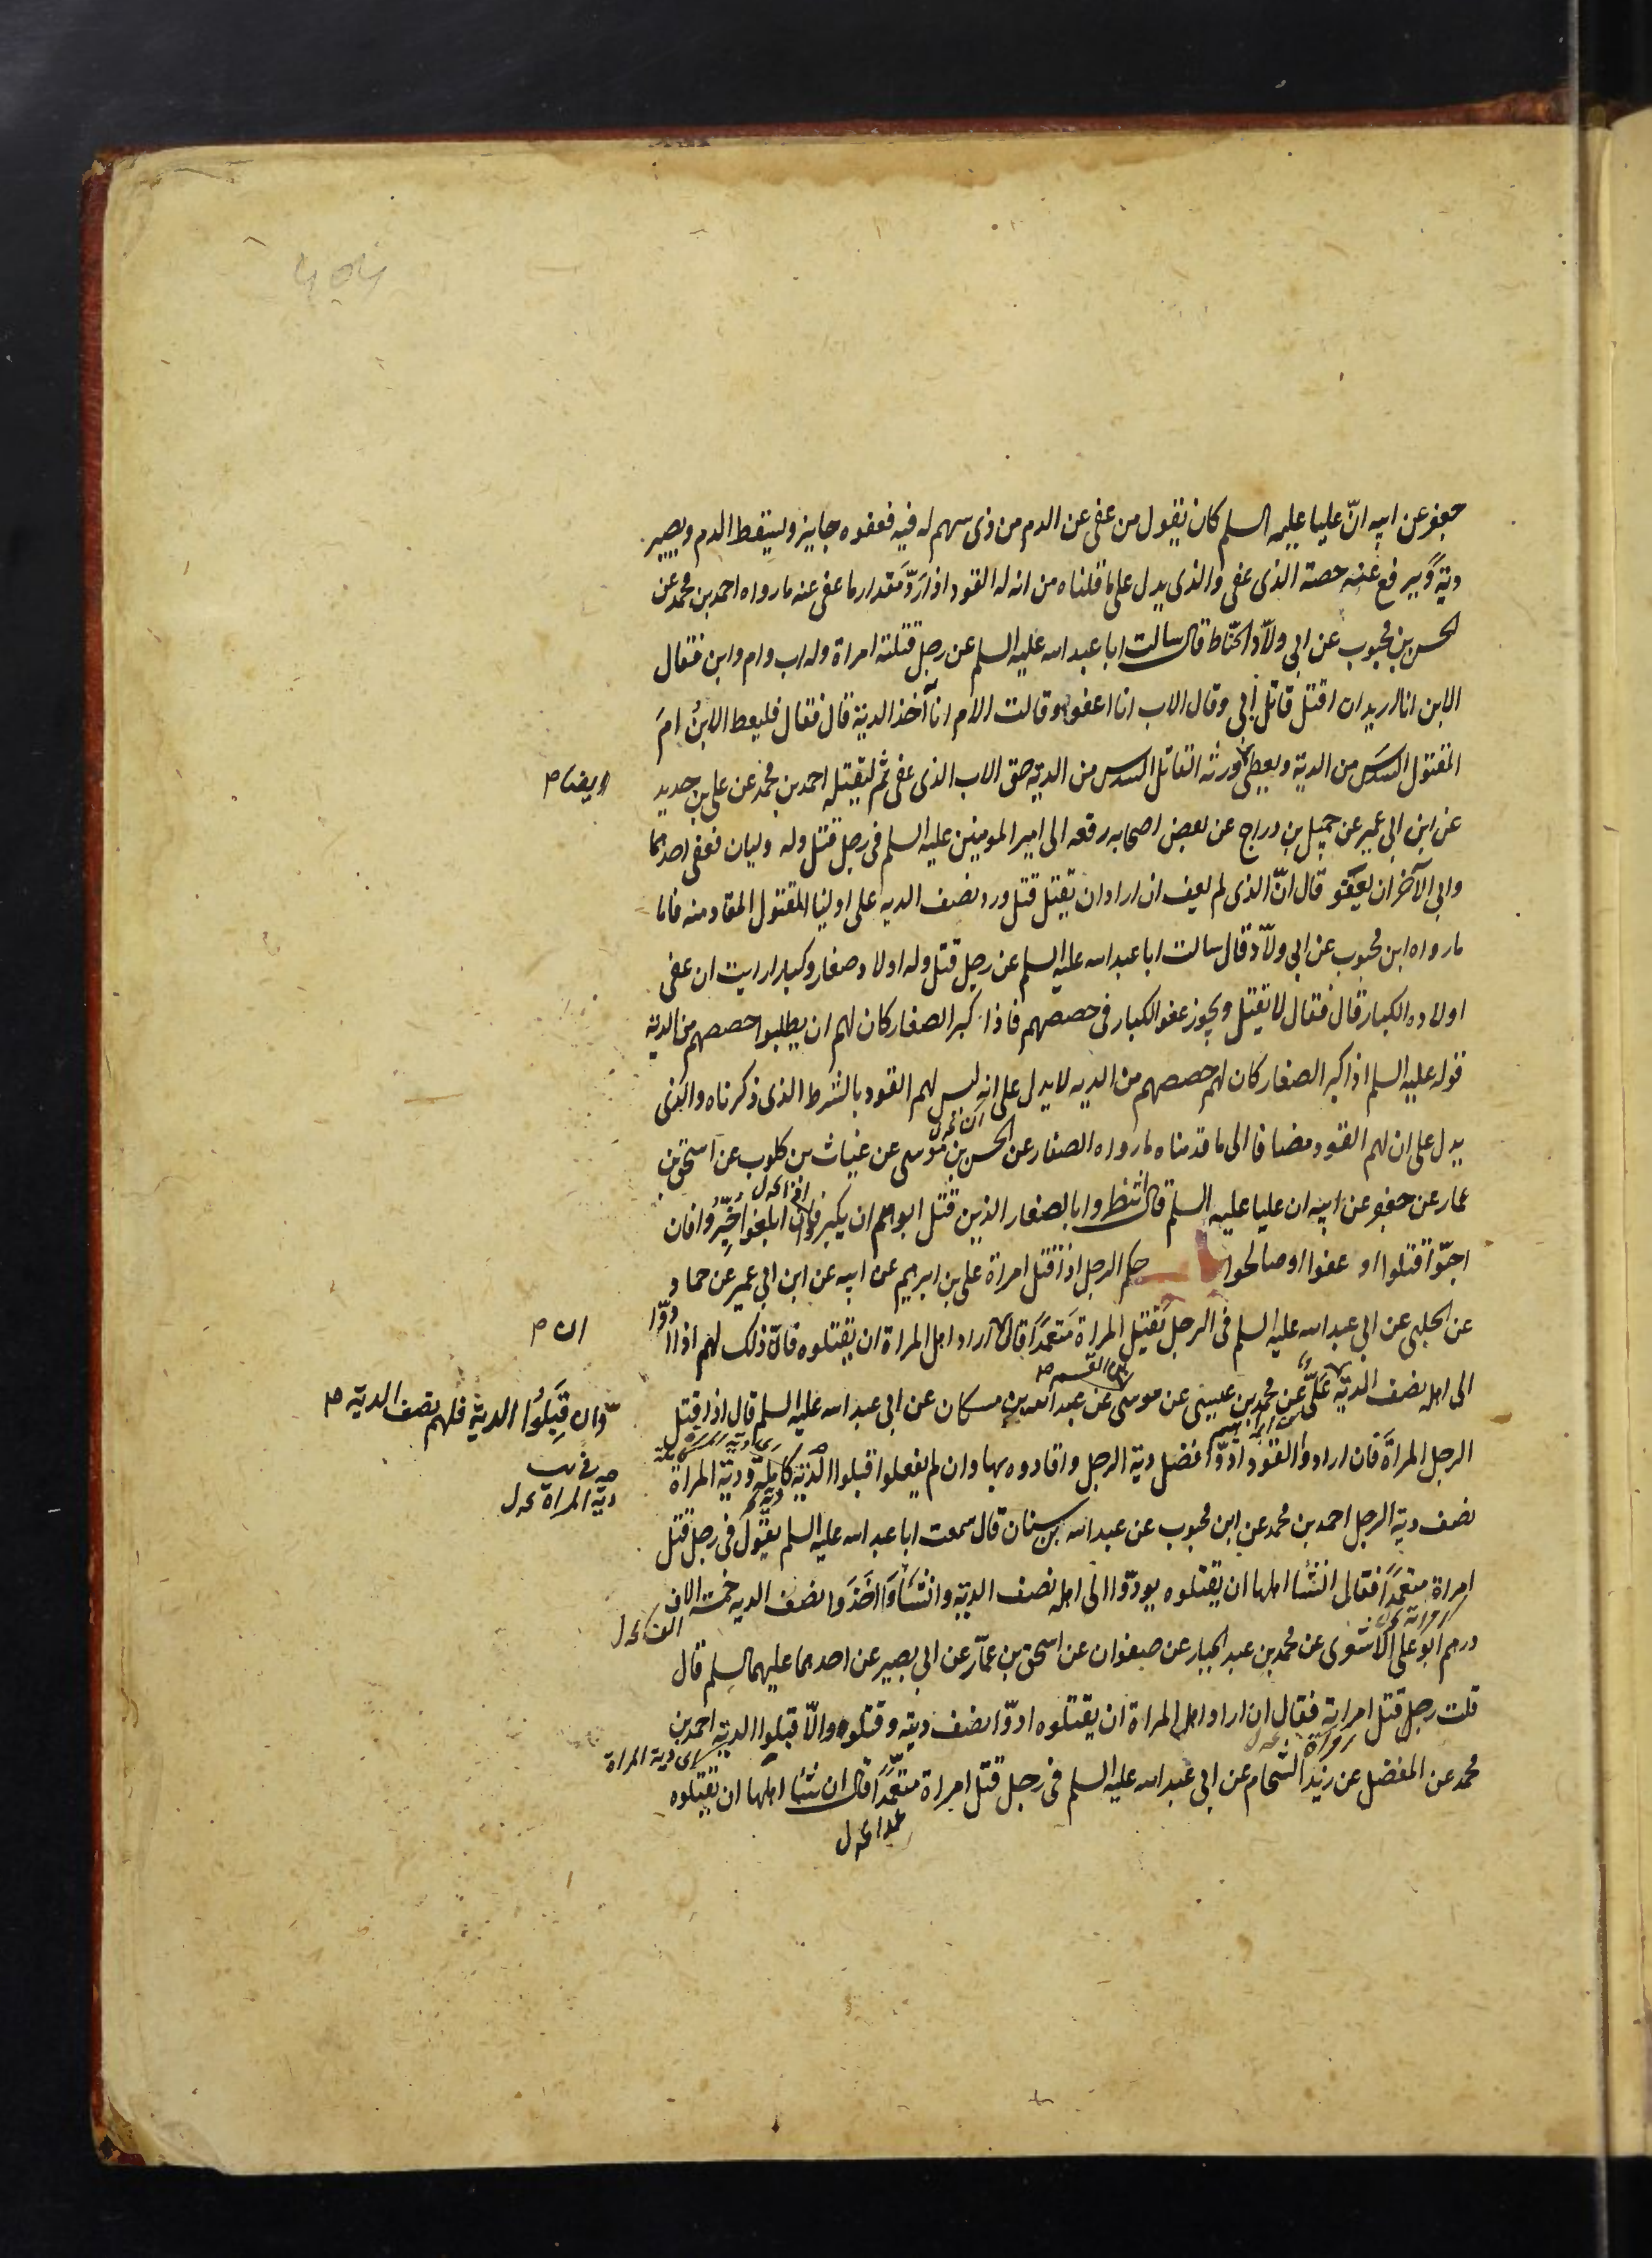 جعفر عن ابيه انّ عليا عليه السلم كان يقول من عفى عن الدم من ذى سهم له فيه فعفوه جايز ويسقط الدم ويصير
دية ويرفع عنه حصة الذى عفى والذى يدل على ما قلناه من انه له القود اذا ردّ مقدار ما عفى عنه ما رواه احمد بن محمد عن
الحسن بن محبوب عن ابى ولاّد الحنّاط قال سالت ابا عبد الله عليه السلم عن رجل قتلته امراة وله اب وام وابن فقال
الابن انا اريد ان اقتل قاتل أبى وقال الاب انا اعفو وقالت الام انا آخذ الدية قال فقال فليعط الابنُ امَ
المقتول السدسَ من الدية ويعطى ورثه القاتل السدس من الدية حق الاب الذى عفى ثم ليقتله احمد بن محمد عن على بن حديد
عن ابن ابى عمير عن جميل بن دراج عن بعض اصحابه رفعه الى امير المومنين عليه السلم فى رجل قتل وله وليان فعفى احدهما
وابى الآخر ان يعفو قال انّ الذى لم يعف ان اراد ان يقتل قتل ورد نصف الديه على اوليا المقتول المقاد منه فاما
ما رواه ابن محبوب عن ابى ولاّد قال سالت ابا عبد الله عليه السلم عن رجل قتل وله اولاد صغار وكبار ارايت ان عفى
اولاده الكبار قال فقال لا يقتل ويجوز عفو الكبار فى حصصهم فاذا كبر الصغار كان لهم ان يطلبوا حصصهم من الدية
قوله عليه السلم اذا كبر الصغار كان لهم حصصهم من الديه لا يدل على انه ليس لهم القود بالشرط الذى ذكرناه والذى
يدل على ان لهم القود مضافا الى ما قدمناه ما رواه الصفار عن الحسن بن موسى عن غياث بن كلوب عن اسحق بن
عمار عن جعفر عن ابيه ان عليا عليه السلم قال انتظروا بالصغار الذين قتل ابوهم ان يكبروا فاذا بلغوا خُيّرُوا فان
احبّوا قتلوا او عفوا او صالحوا حكم الرجل اذا قتل امراة على بن ابرهيم عن ابيه عن ابن ابى عمير عن حماد
عن الحلبى عن ابى عبد الله عليه السلم فى الرجل يقتل المراة متعمدًا قال اراد اهل المراة ان يقتلوه قال ذلك لهم اذا ادّوا
ان
الى اهله نصف الدية على عن محمد بن عيسى عن موسى عن عبد الله بن مسكان عن ابى عبد الله عليه السلم قال اذا قتل
وان قبلوا الدية فلهم نصف الدية
الرجل المراةَ فان ارادوا القود ادّوا فضل دية الرجل واقادوه بها وان لم يفعلوا قبلوا الدية كاملة ودية المراة
دية المراة
نصف دية الرجل احمد بن محمد عن ابن محبوب عن عبد الله بن سنان قال سمعت ابا عبد الله عليه السلم يقول فى رجل قتل
امراة متعمدًا فقال ان شا اهلها ان يقتلوه يودّوا الى اهله نصف الدية وان شاوا اخذوا نصف الديه خمسة الاف
درهم ابو على الاشعرى عن محمد بن عبد الجبار عن صفوان عن اسحق بن عمّار عن ابى بصير عن احدهما عليهما السلم قال
قلت رجل قتل امراته فقال ان اراد اهل المراة ان يقتلوه ادّوا نصف ديته وقتلوه والّا قبلوا الدية احمد بن
اى دية المراة
محمد عن المفضل عن زيد الشحام عن ابى عبد الله عليه السلم فى رجل قتل امراة متعمّدًا قال ان شا اهلها ان يقتلوه